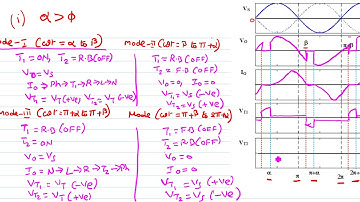 (i) α > φ
mode-I (ωt = α to β)
T1 = ON, T2 = R.B (OFF)
Vo = Vs
Io ⇒ Ph → T1 → R → L → N
VT1 = VT (+ve) VT2 = VT (-ve)
mode-II (ωt = β to π+α)
T1 = R.B (OFF)
T2 = F.B (OFF)
Vo = 0, Io = 0
VT1 = Vs (-ve)
VT2 = Vs (+ve)
mode-III (ωt = π+α to π+β)
T1 = R.B (OFF)
T2 = ON
Vo = Vs
Io = N → L → R → T2 → Ph
VT1 = VT (-ve)
VT2 = VT (+ve)
Mode (ωt = π+β to 2π+α)
T1 = F.B (OFF)
T2 = R.B (OFF)
Vo = 0
Io = 0
VT1 = Vs (+ve)
VT2 = Vs (-ve)
Vs
0
Vo
β
Io
VT1
VT2
α π π+α 2π 2π+